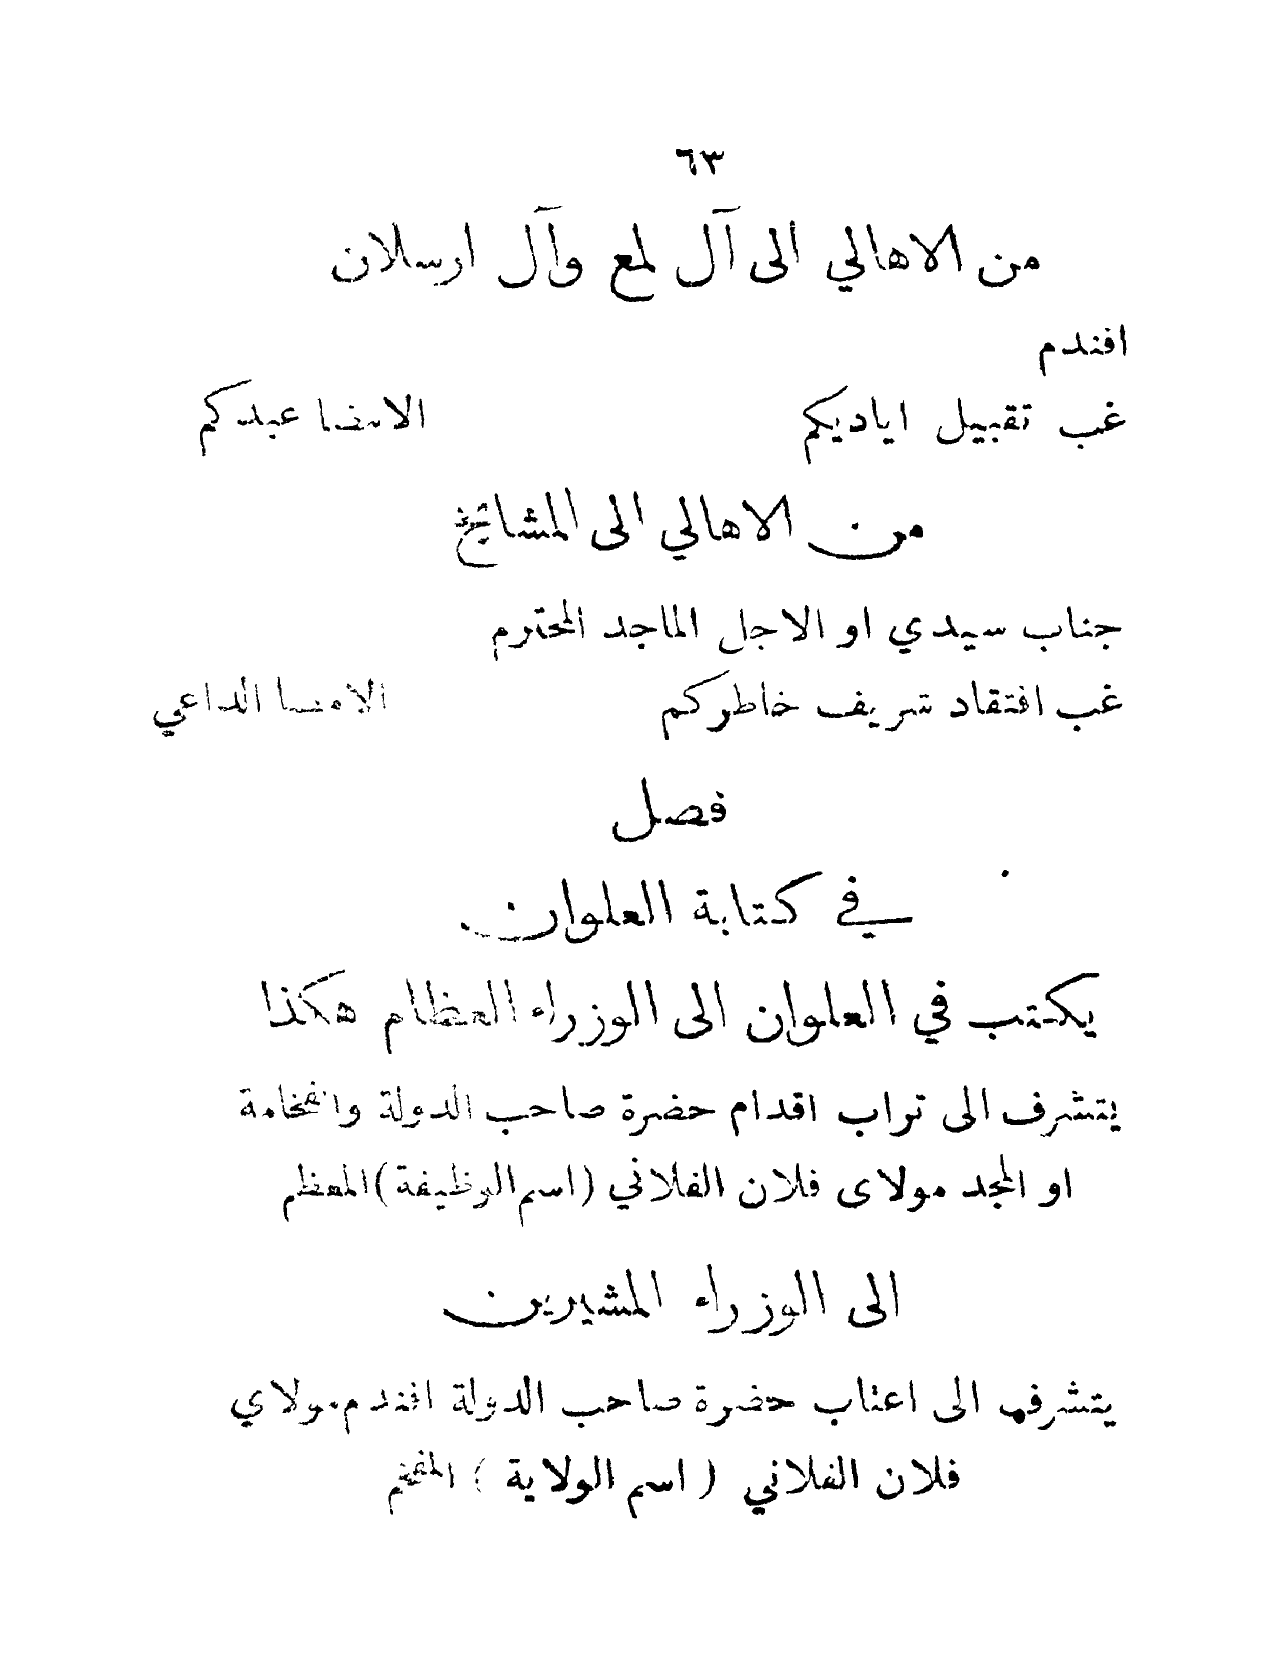 ٦٣
من الاهالي الى آل لمع وآل ارسلان
افندم
غب تقبيل اياديكم الامضا عبدكم
من الاهالي الى المشائخ
جناب سيدي او الاجل الماجد المحترم
غب افتقاد شريف خاطركم الامضا الداعي
فصل
في كتابة العلوان
يكتب في العلوان الى الوزراء العظام هكذا
يتشرف الى تراب اقدام حضرة صاحب الدولة والفخامة
او المجد مولاى فلان الفلاني (اسم الوظيفة) المعظم
الى الوزراء المشيرين
يتشرف الى اعتاب حضرة صاحب الدولة افندم مولاي
فلان الفلاني ( اسم الولاية ) المفخم